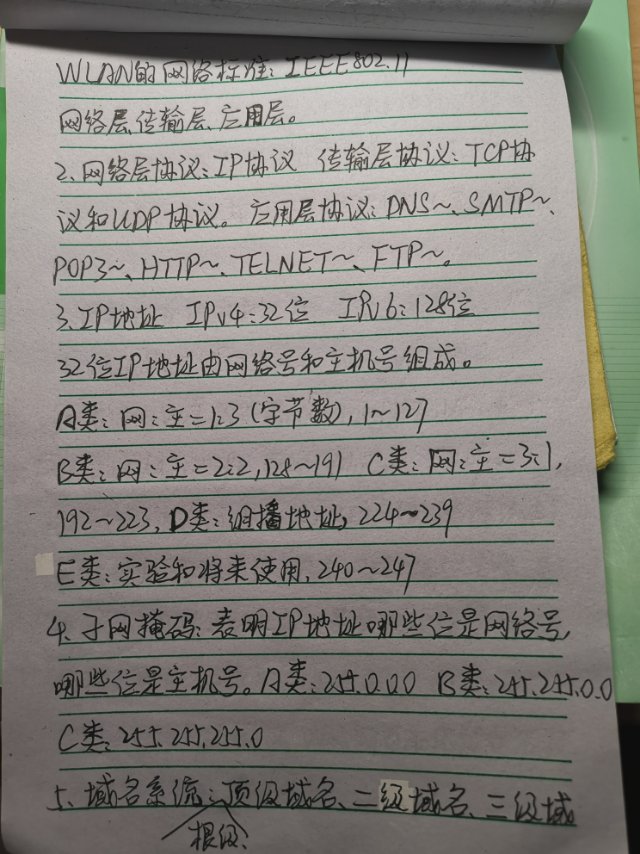 WLAN的网络标准：IEEE802.11
网络层、传输层、应用层。
2、网络层协议：IP协议 传输层协议：TCP协
议和UDP协议。应用层协议：DNS~、SMTP~、
POP3~、HTTP~、TELNET~、FTP~。
3、IP地址 IPv4：32位 IPv6：128位
32位IP地址由网络号和主机号组成。
A类：网：主=1：3（字节数），1~127
B类：网：主=2：2，128~191 C类：网：主=3：1，
192~223，D类：组播地址，224~239
E类：实验和将来使用，240~247
4、子网掩码：表明IP地址哪些位是网络号，
哪些位是主机号。A类：255.0.0.0 B类：255.255.0.0
C类：255.255.255.0
5、域名系统：顶级域名、二级域名、三级域
根级、